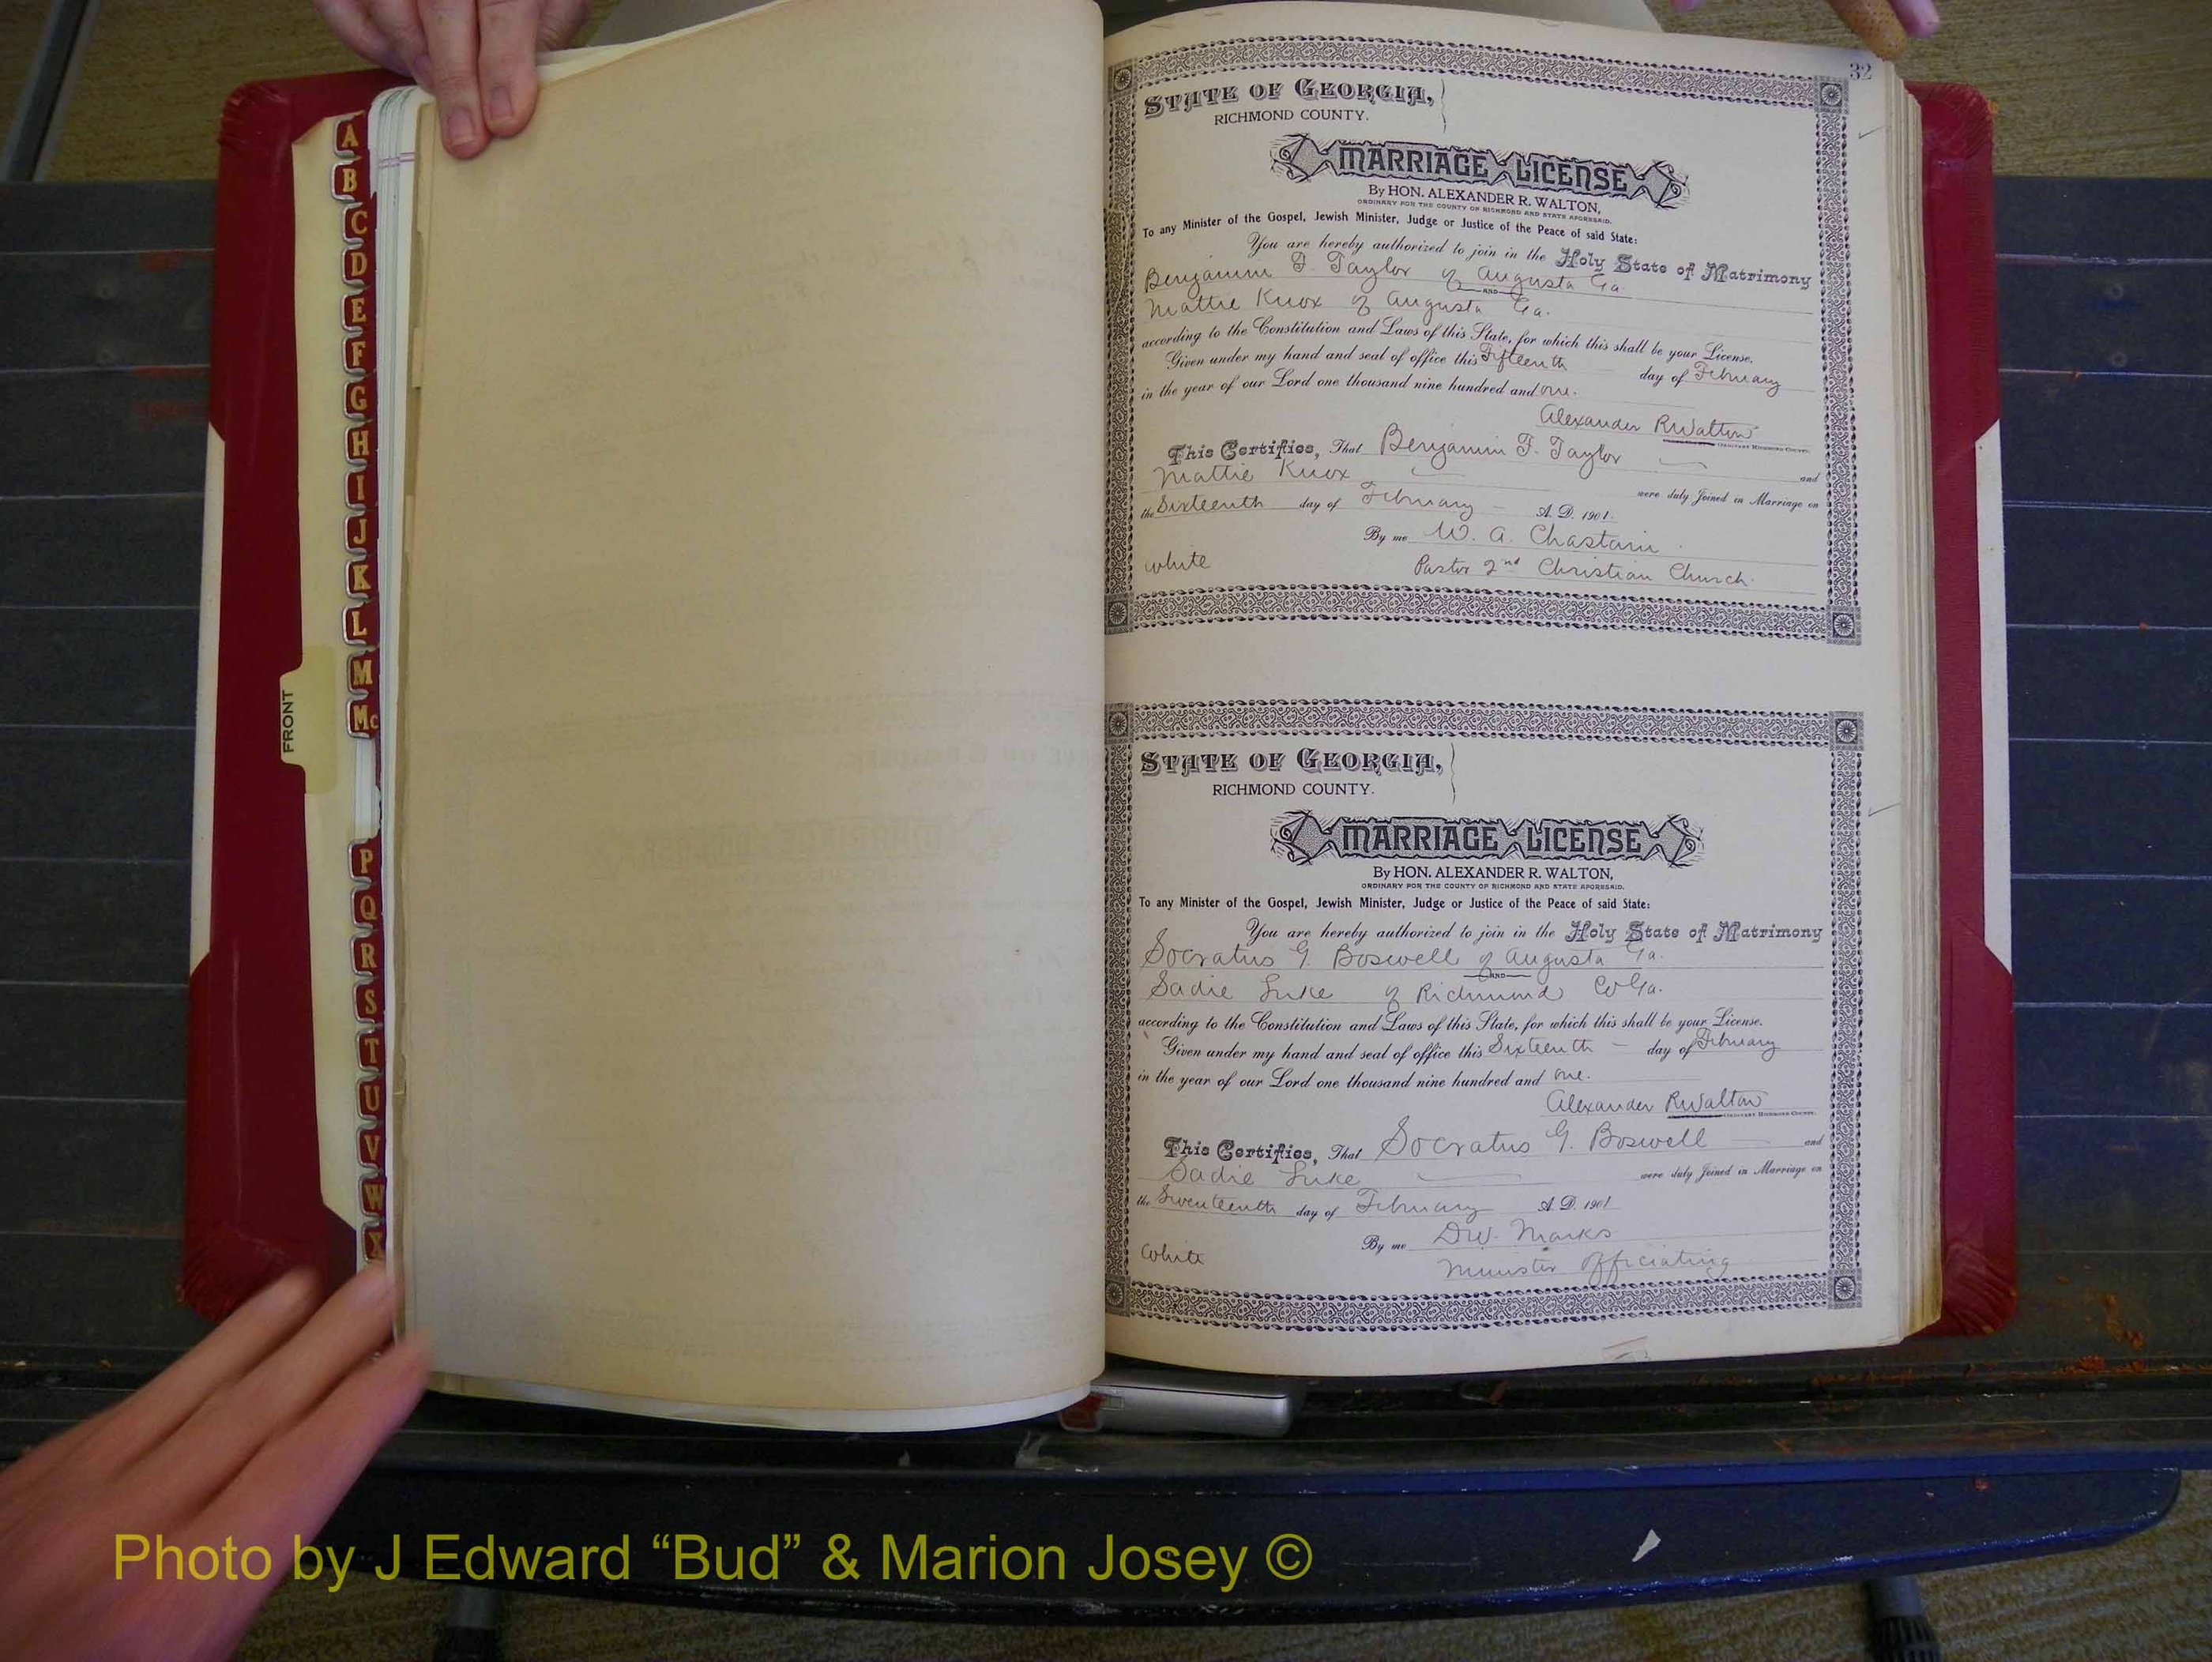 32
STATE OF GEORGIA,
RICHMOND COUNTY.
MARRIAGE LICENSE
By HON. ALEXANDER R. WALTON,
ORDINARY FOR THE COUNTY OF RICHMOND AND STATE AFORESAID.
To any Minister of the Gospel, Jewish Minister, Judge or Justice of the Peace of said State:
You are hereby authorized to join in the Holy State of Matrimony
Benjamin F. Taylor of Augusta Ga.
AND
Mattie Knox of Augusta Ga.
according to the Constitution and Laws of this State, for which this shall be your License.
Given under my hand and seal of office this Fifteenth day of February
in the year of our Lord one thousand nine hundred and one.
Alexander R Walton
ORDINARY RICHMOND COUNTY.
This Certifies, That Benjamin F. Taylor and
Mattie Knox were duly Joined in Marriage on
the Sixteenth day of February A. D. 1901.
By me W. A. Chastain
white Pastor 2nd Christian Church.
STATE OF GEORGIA,
RICHMOND COUNTY.
MARRIAGE LICENSE
By HON. ALEXANDER R. WALTON,
ORDINARY FOR THE COUNTY OF RICHMOND AND STATE AFORESAID.
To any Minister of the Gospel, Jewish Minister, Judge or Justice of the Peace of said State:
You are hereby authorized to join in the Holy State of Matrimony
Socratus G. Boswell of Augusta Ga.
AND
Sadie Luke of Richmond Co Ga.
according to the Constitution and Laws of this State, for which this shall be your License.
Given under my hand and seal of office this Sixteenth day of February
in the year of our Lord one thousand nine hundred and one.
Alexander R Walton
ORDINARY RICHMOND COUNTY.
This Certifies, That Socratus G. Boswell and
Sadie Luke were duly Joined in Marriage on
the Seventeenth day of February A. D. 1901
By me D.W. Marks
White Minister Officiating
A
B
C
D
E
F
G
H
I
J
K
L
M
Mc
P
Q
R
S
T
U
V
W
X
FRONT
Photo by J Edward “Bud” & Marion Josey ©